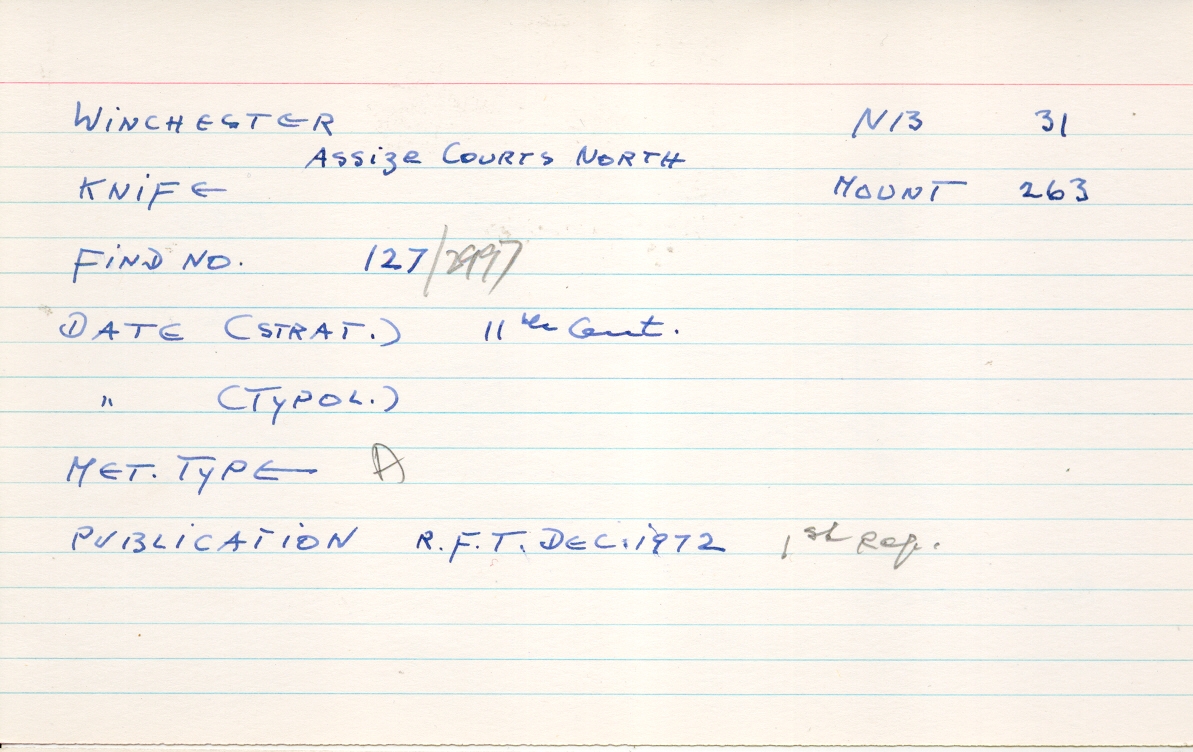 WINCHESTER N13 31
ASSIZE COURTS NORTH
KNIFE MOUNT 263
FIND NO. 127/2997
DATE (STRAT.) 11th Cent.
" (TYPOL.)
MET. TYPE A
PUBLICATION R.F.T. DEC. 1972 1st Rep.